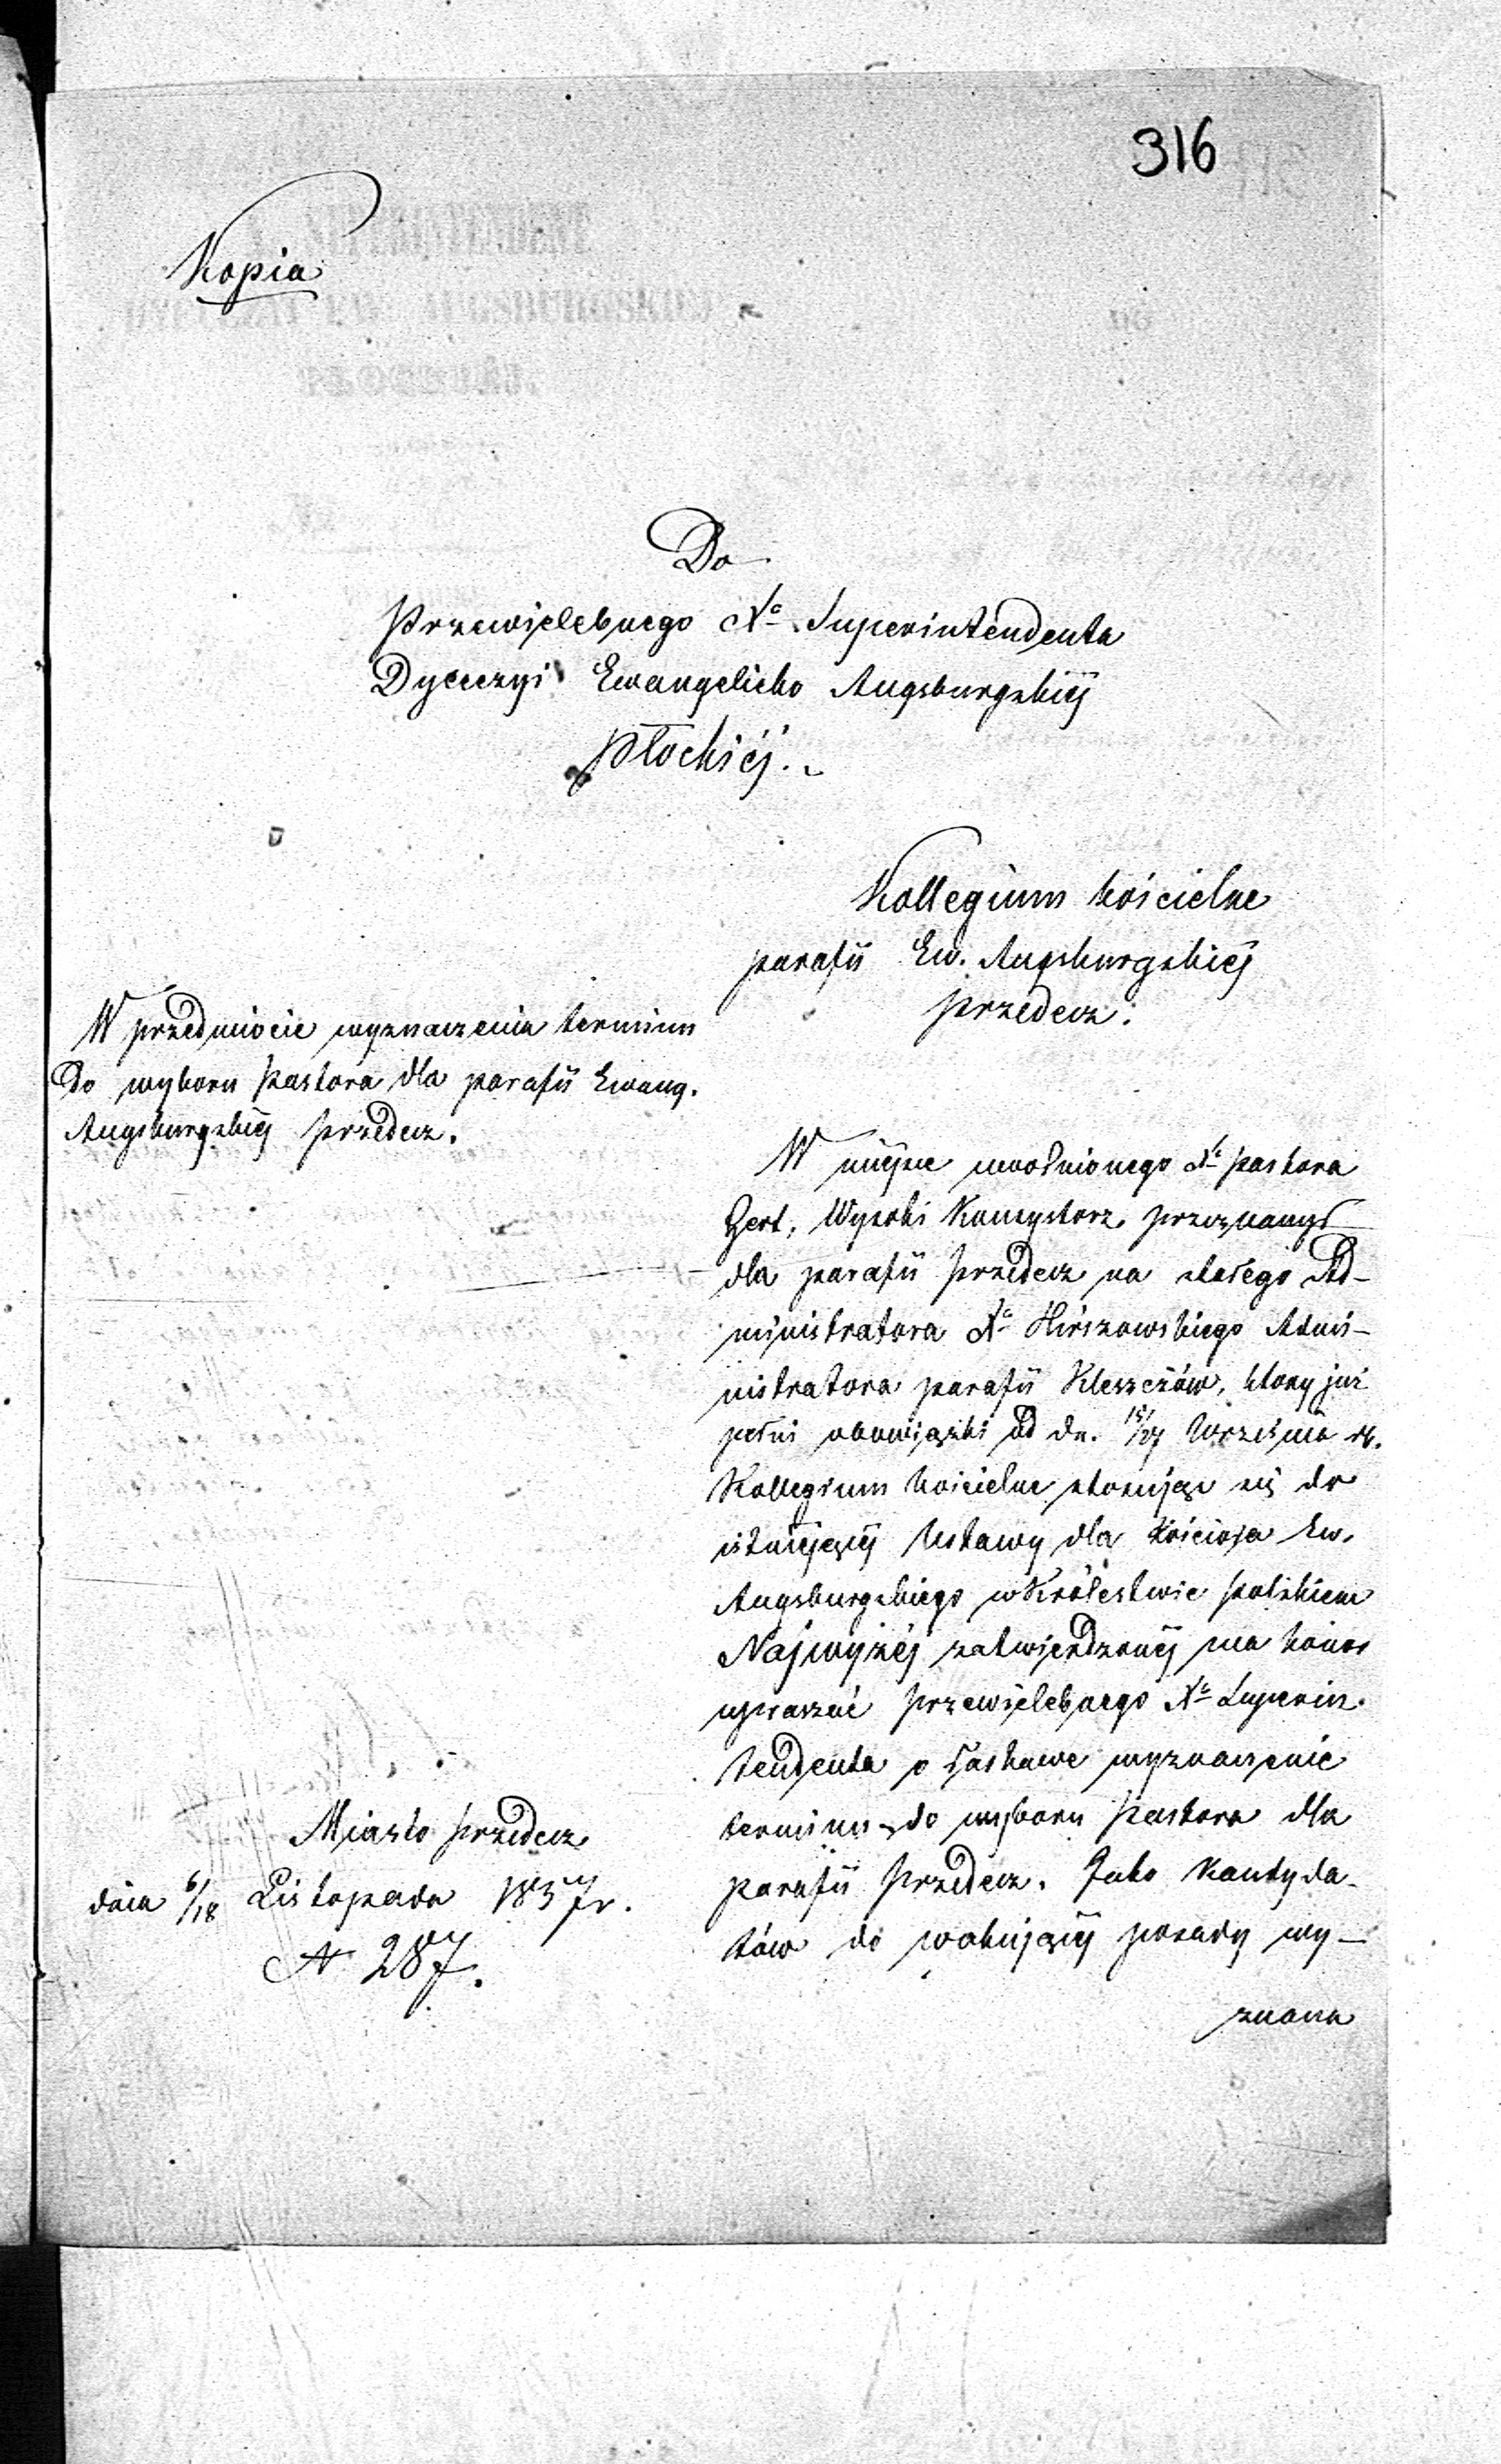 316
Kopia
Do
Przewielebnego Xa Superintendenta
Dyecezyi Ewangelicko Augsburgskiéj
Płockiéj.
Kollegium kościelne
parafii Ew. Augsburgskiéj
Przedecz.
W przedmiocie wyznaczenia terminu
Do wyboru Pastora dla parafii Ewang.
Augsburgskiéj Przedecz.
W miejsce uwolnionego Xa Pastora
Zert, Wysoki Konsystorz, przeznaczył
dla parafii Przedecz na stałego Ad-
ministratora Xa Hirszowskiego Admi-
nistratora parafii Kleszczów, ktory już
pełni obowiązki od dn. 15/27 Września rb.
Kollegium kościelne stosując się do
istniejącéj Ustawy dla kościoła Ew.
Augsburgskiego w Królestwie Polskiem
Najwyżéj zatwierdzonéj ma honor
upraszać Przewielebnego Xa Superin-
tendenta o łaskawe wyznaczenie
terminu do wyboru Pastora dla
parafii Przedecz. Jako Kandyda-
tów do wakującéj posady wy-
znacza
Miasto Przedecz
dnia 6/18 Listopada 1857 r.
N 287.